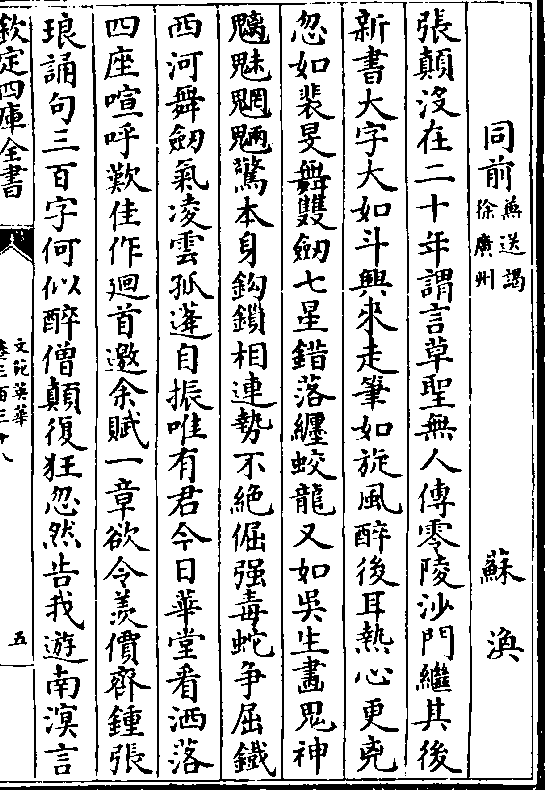 同前兼送謁徐廣州　蘇渙
張顛沒在二十年謂言草聖無人傳零陵沙門繼其後
新書大字大如斗興來走筆如旋風醉後耳熱心更兇
忽如裴旻舞雙劒七星錯落纒蛟龍又如吳生畫鬼神
魑魅魍魎驚本身鈎鎖相連勢不絶倔强毒蛇争屈鐵
西河舞劒氣凌雲孤蓬自振唯有君今日華堂看洒落
四座喧呼歎佳作廻首邀余賦一章欲令羨價齊鍾張
琅誦句三百字何似醉僧顛復狂忽然告我遊南溟言
欽定四庫全書
文苑英華
卷三百三十八
五